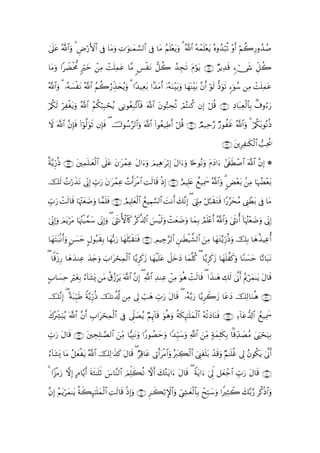 صُدُورِكُمْ أَوْ تُبْدُوهُ يَعْلَمْهُ ٱللَّهُ ۗ وَيَعْلَمُ مَا فِى ٱلسَّمَـٰوَٰتِ وَمَا فِى ٱلْأَرْضِ ۗ وَٱللَّهُ عَلَىٰ
كُلِّ شَىْءٍ قَدِيرٌ ﴿٢٩﴾ يَوْمَ تَجِدُ كُلُّ نَفْسٍ مَّا عَمِلَتْ مِنْ خَيْرٍ مُّحْضَرًا وَمَا
عَمِلَتْ مِن سُوٓءٍ تَوَدُّ لَوْ أَنَّ بَيْنَهَا وَبَيْنَهُۥٓ أَمَدًۢا بَعِيدًا ۗ وَيُحَذِّرُكُمُ ٱللَّهُ نَفْسَهُۥ ۗ وَٱللَّهُ
رَءُوفٌۢ بِٱلْعِبَادِ ﴿٣٠﴾ قُلْ إِن كُنتُمْ تُحِبُّونَ ٱللَّهَ فَٱتَّبِعُونِى يُحْبِبْكُمُ ٱللَّهُ وَيَغْفِرْ لَكُمْ
ذُنُوبَكُمْ ۗ وَٱللَّهُ غَفُورٌ رَّحِيمٌ ﴿٣١﴾ قُلْ أَطِيعُوا۟ ٱللَّهَ وَٱلرَّسُولَ ۖ فَإِن تَوَلَّوْا۟ فَإِنَّ ٱللَّهَ لَا
يُحِبُّ ٱلْكَـٰفِرِينَ ﴿٣٢﴾
۞ إِنَّ ٱللَّهَ ٱصْطَفَىٰٓ ءَادَمَ وَنُوحًا وَءَالَ إِبْرَٰهِيمَ وَءَالَ عِمْرَٰنَ عَلَى ٱلْعَـٰلَمِينَ ﴿٣٣﴾ ذُرِّيَّةًۢ
بَعْضُهَا مِنۢ بَعْضٍ ۗ وَٱللَّهُ سَمِيعٌ عَلِيمٌ ﴿٣٤﴾ إِذْ قَالَتِ ٱمْرَأَتُ عِمْرَٰنَ رَبِّ إِنِّى نَذَرْتُ لَكَ
مَا فِى بَطْنِى مُحَرَّرًا فَتَقَبَّلْ مِنِّىٓ ۖ إِنَّكَ أَنتَ ٱلسَّمِيعُ ٱلْعَلِيمُ ﴿٣٥﴾ فَلَمَّا وَضَعَتْهَا قَالَتْ رَبِّ
إِنِّى وَضَعْتُهَآ أُنثَىٰ وَٱللَّهُ أَعْلَمُ بِمَا وَضَعَتْ وَلَيْسَ ٱلذَّكَرُ كَٱلْأُنثَىٰ ۖ وَإِنِّى سَمَّيْتُهَا مَرْيَمَ وَإِنِّىٓ
أُعِيذُهَا بِكَ وَذُرِّيَّتَهَا مِنَ ٱلشَّيْطَـٰنِ ٱلرَّجِيمِ ﴿٣٦﴾ فَتَقَبَّلَهَا رَبُّهَا بِقَبُولٍ حَسَنٍ وَأَنۢبَتَهَا
نَبَاتًا حَسَنًا وَكَفَّلَهَا زَكَرِيَّا ۖ كُلَّمَا دَخَلَ عَلَيْهَا زَكَرِيَّا ٱلْمِحْرَابَ وَجَدَ عِندَهَا رِزْقًا ۖ
قَالَ يَـٰمَرْيَمُ أَنَّىٰ لَكِ هَـٰذَا ۖ قَالَتْ هُوَ مِنْ عِندِ ٱللَّهِ ۖ إِنَّ ٱللَّهَ يَرْزُقُ مَن يَشَآءُ بِغَيْرِ حِسَابٍ
﴿٣٧﴾ هُنَالِكَ دَعَا زَكَرِيَّا رَبَّهُۥ ۖ قَالَ رَبِّ هَبْ لِى مِن لَّدُنكَ ذُرِّيَّةً طَيِّبَةً ۖ إِنَّكَ
سَمِيعُ ٱلدُّعَآءِ ﴿٣٨﴾ فَنَادَتْهُ ٱلْمَلَـٰٓئِكَةُ وَهُوَ قَآئِمٌ يُصَلِّى فِى ٱلْمِحْرَابِ أَنَّ ٱللَّهَ يُبَشِّرُكَ
بِيَحْيَىٰ مُصَدِّقًۢا بِكَلِمَةٍ مِّنَ ٱللَّهِ وَسَيِّدًا وَحَصُورًا وَنَبِيًّا مِّنَ ٱلصَّـٰلِحِينَ ﴿٣٩﴾ قَالَ رَبِّ
أَنَّىٰ يَكُونُ لِى غُلَـٰمٌ وَقَدْ بَلَغَنِىَ ٱلْكِبَرُ وَٱمْرَأَتِى عَاقِرٌ ۖ قَالَ كَذَٰلِكَ ٱللَّهُ يَفْعَلُ مَا يَشَآءُ
﴿٤٠﴾ قَالَ رَبِّ ٱجْعَل لِّىٓ ءَايَةً ۖ قَالَ ءَايَتُكَ أَلَّا تُكَلِّمَ ٱلنَّاسَ ثَلَـٰثَةَ أَيَّامٍ إِلَّا رَمْزًا ۗ
وَٱذْكُر رَّبَّكَ كَثِيرًا وَسَبِّحْ بِٱلْعَشِىِّ وَٱلْإِبْكَـٰرِ ﴿٤١﴾ وَإِذْ قَالَتِ ٱلْمَلَـٰٓئِكَةُ يَـٰمَرْيَمُ إِنَّ